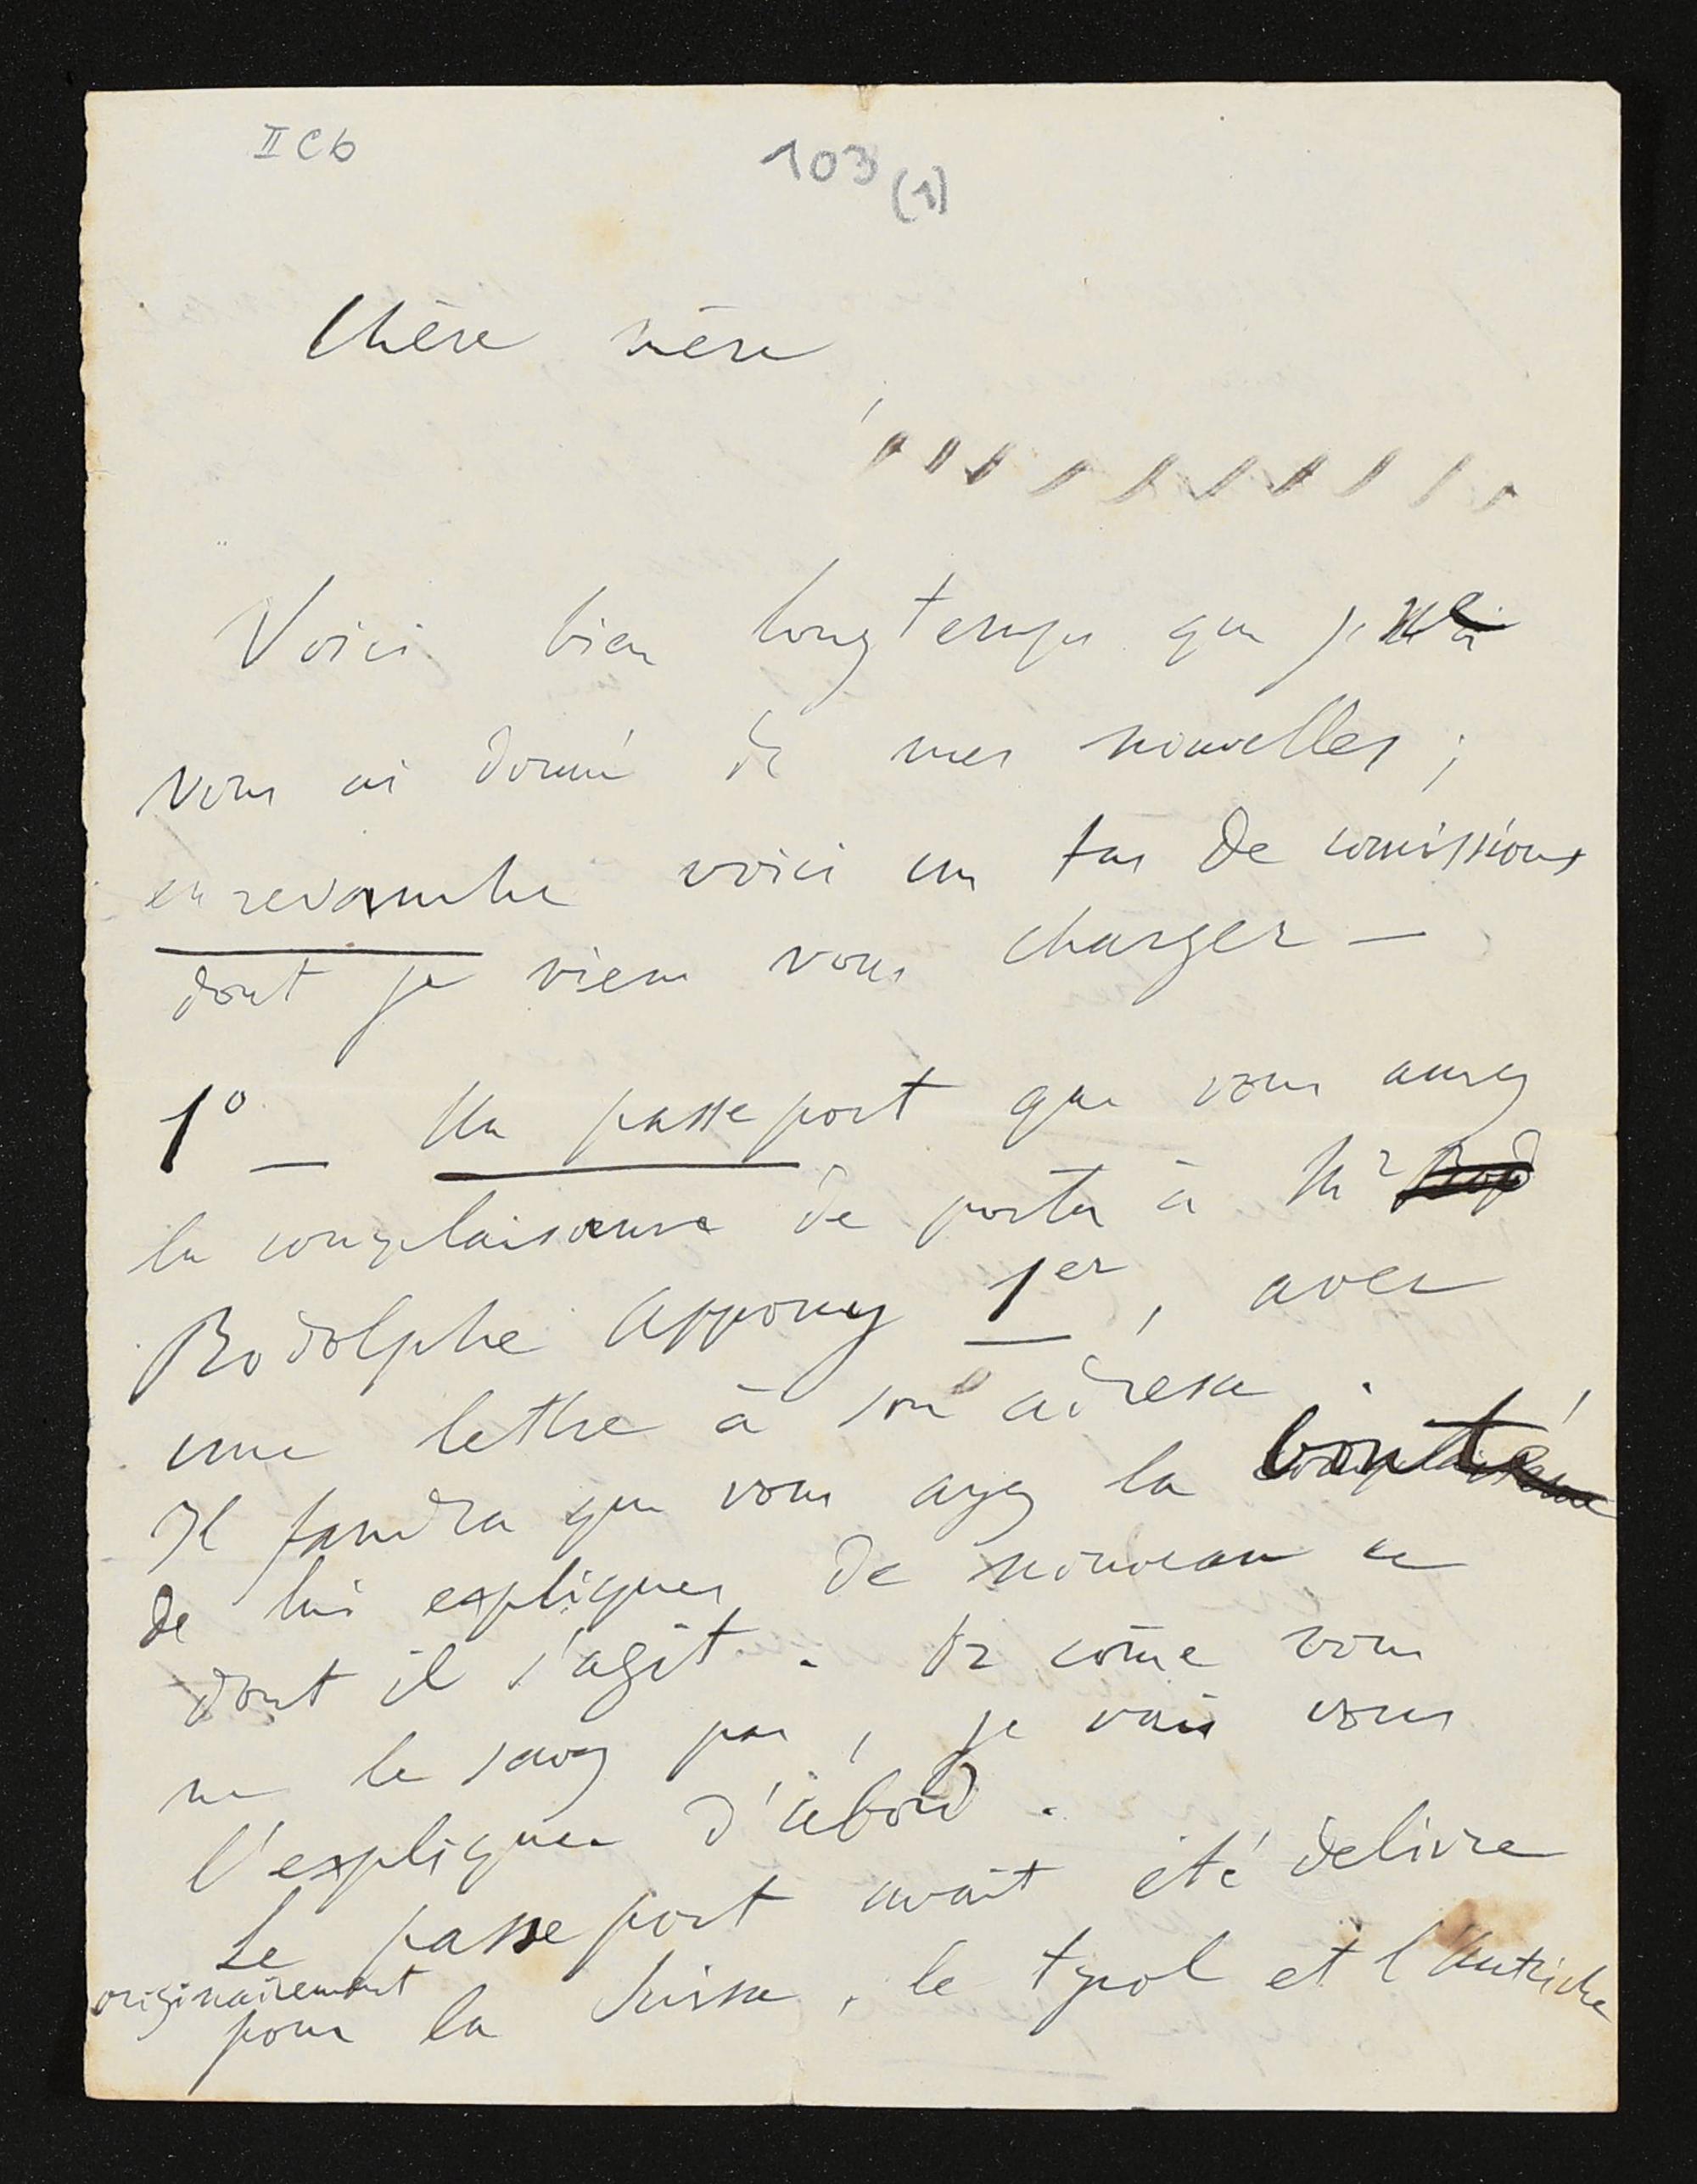 II C b
103 (1)
Chère mère
Voici bien longtemps que je ne
vous ai donné de mes nouvelles ;
en revanche voici un tas de comissions
dont je viens vous charger —
1º — Un passeport que vous aurez
la complaisance de porter à Mr
Rodolphe Appony 1er, avec
une lettre à son adresse .
Il faudra que vous ayez la bonté
de lui expliquer de nouveau ce
dont il s'agit . Or cõme vous
ne le savez pas, je vais vous
l'expliquer d'abord .
Le passeport avait été delivre
originairement
pour la Suisse, le tyrol et l'Autriche